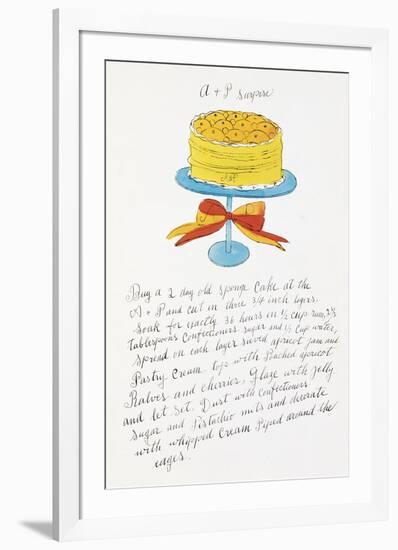 A + P Surprise
A+P
Buy a 2 day old sponge Cake at the
A + P and cut in three 3/4 inch layers.
Soak for exactly 36 hours in 1/2 cup rum, 2 1/2
tablespoons Confectioners sugar and 1/2 Cup water,
spread on each layer sieved apricot jam and
Pastry Cream. top with Poached apricot
Halves and cherries. Glaze with jelly
and let set. Dust with Confectioners
sugar and Pistachio nuts and decorate
with whypped Cream Piped around the
edges.